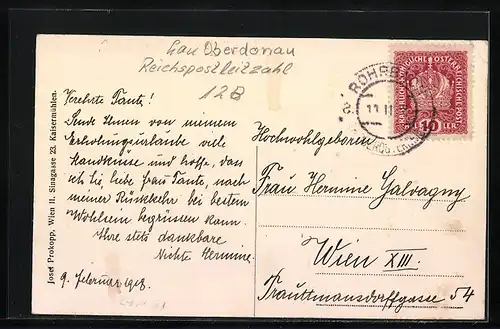 Gau Oberdonau
Reichspostleitzahl
12B
Verehrte Tante!
Sende Ihnen von meinem
Erholungsurlaube viele
Handküsse und hoffe, dass
ich Sie, liebe Frau Tante, nach
meiner Rückkehr bei bestem
Wohlsein begrüssen kann.
Ihre stets dankbare
Nichte Hermine.
9. Februar 1918.
Josef Prokopp, Wien II. Sinagasse 23. Kaisermühlen.
ROHRB
11 II
KAISERLICHE KÖNIGLICHE ÖSTERREICHISCHE POST
10 HELLER
Hochwohlgeboren
Frau Hermine Galvagny
Wien XIII.
Trauttmansdorffgasse 54